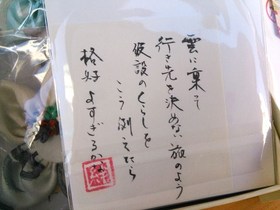 雲に乗って
行き先を決めない旅のよう
仮設のくらしを
こう例えたら
格好よすぎるかな